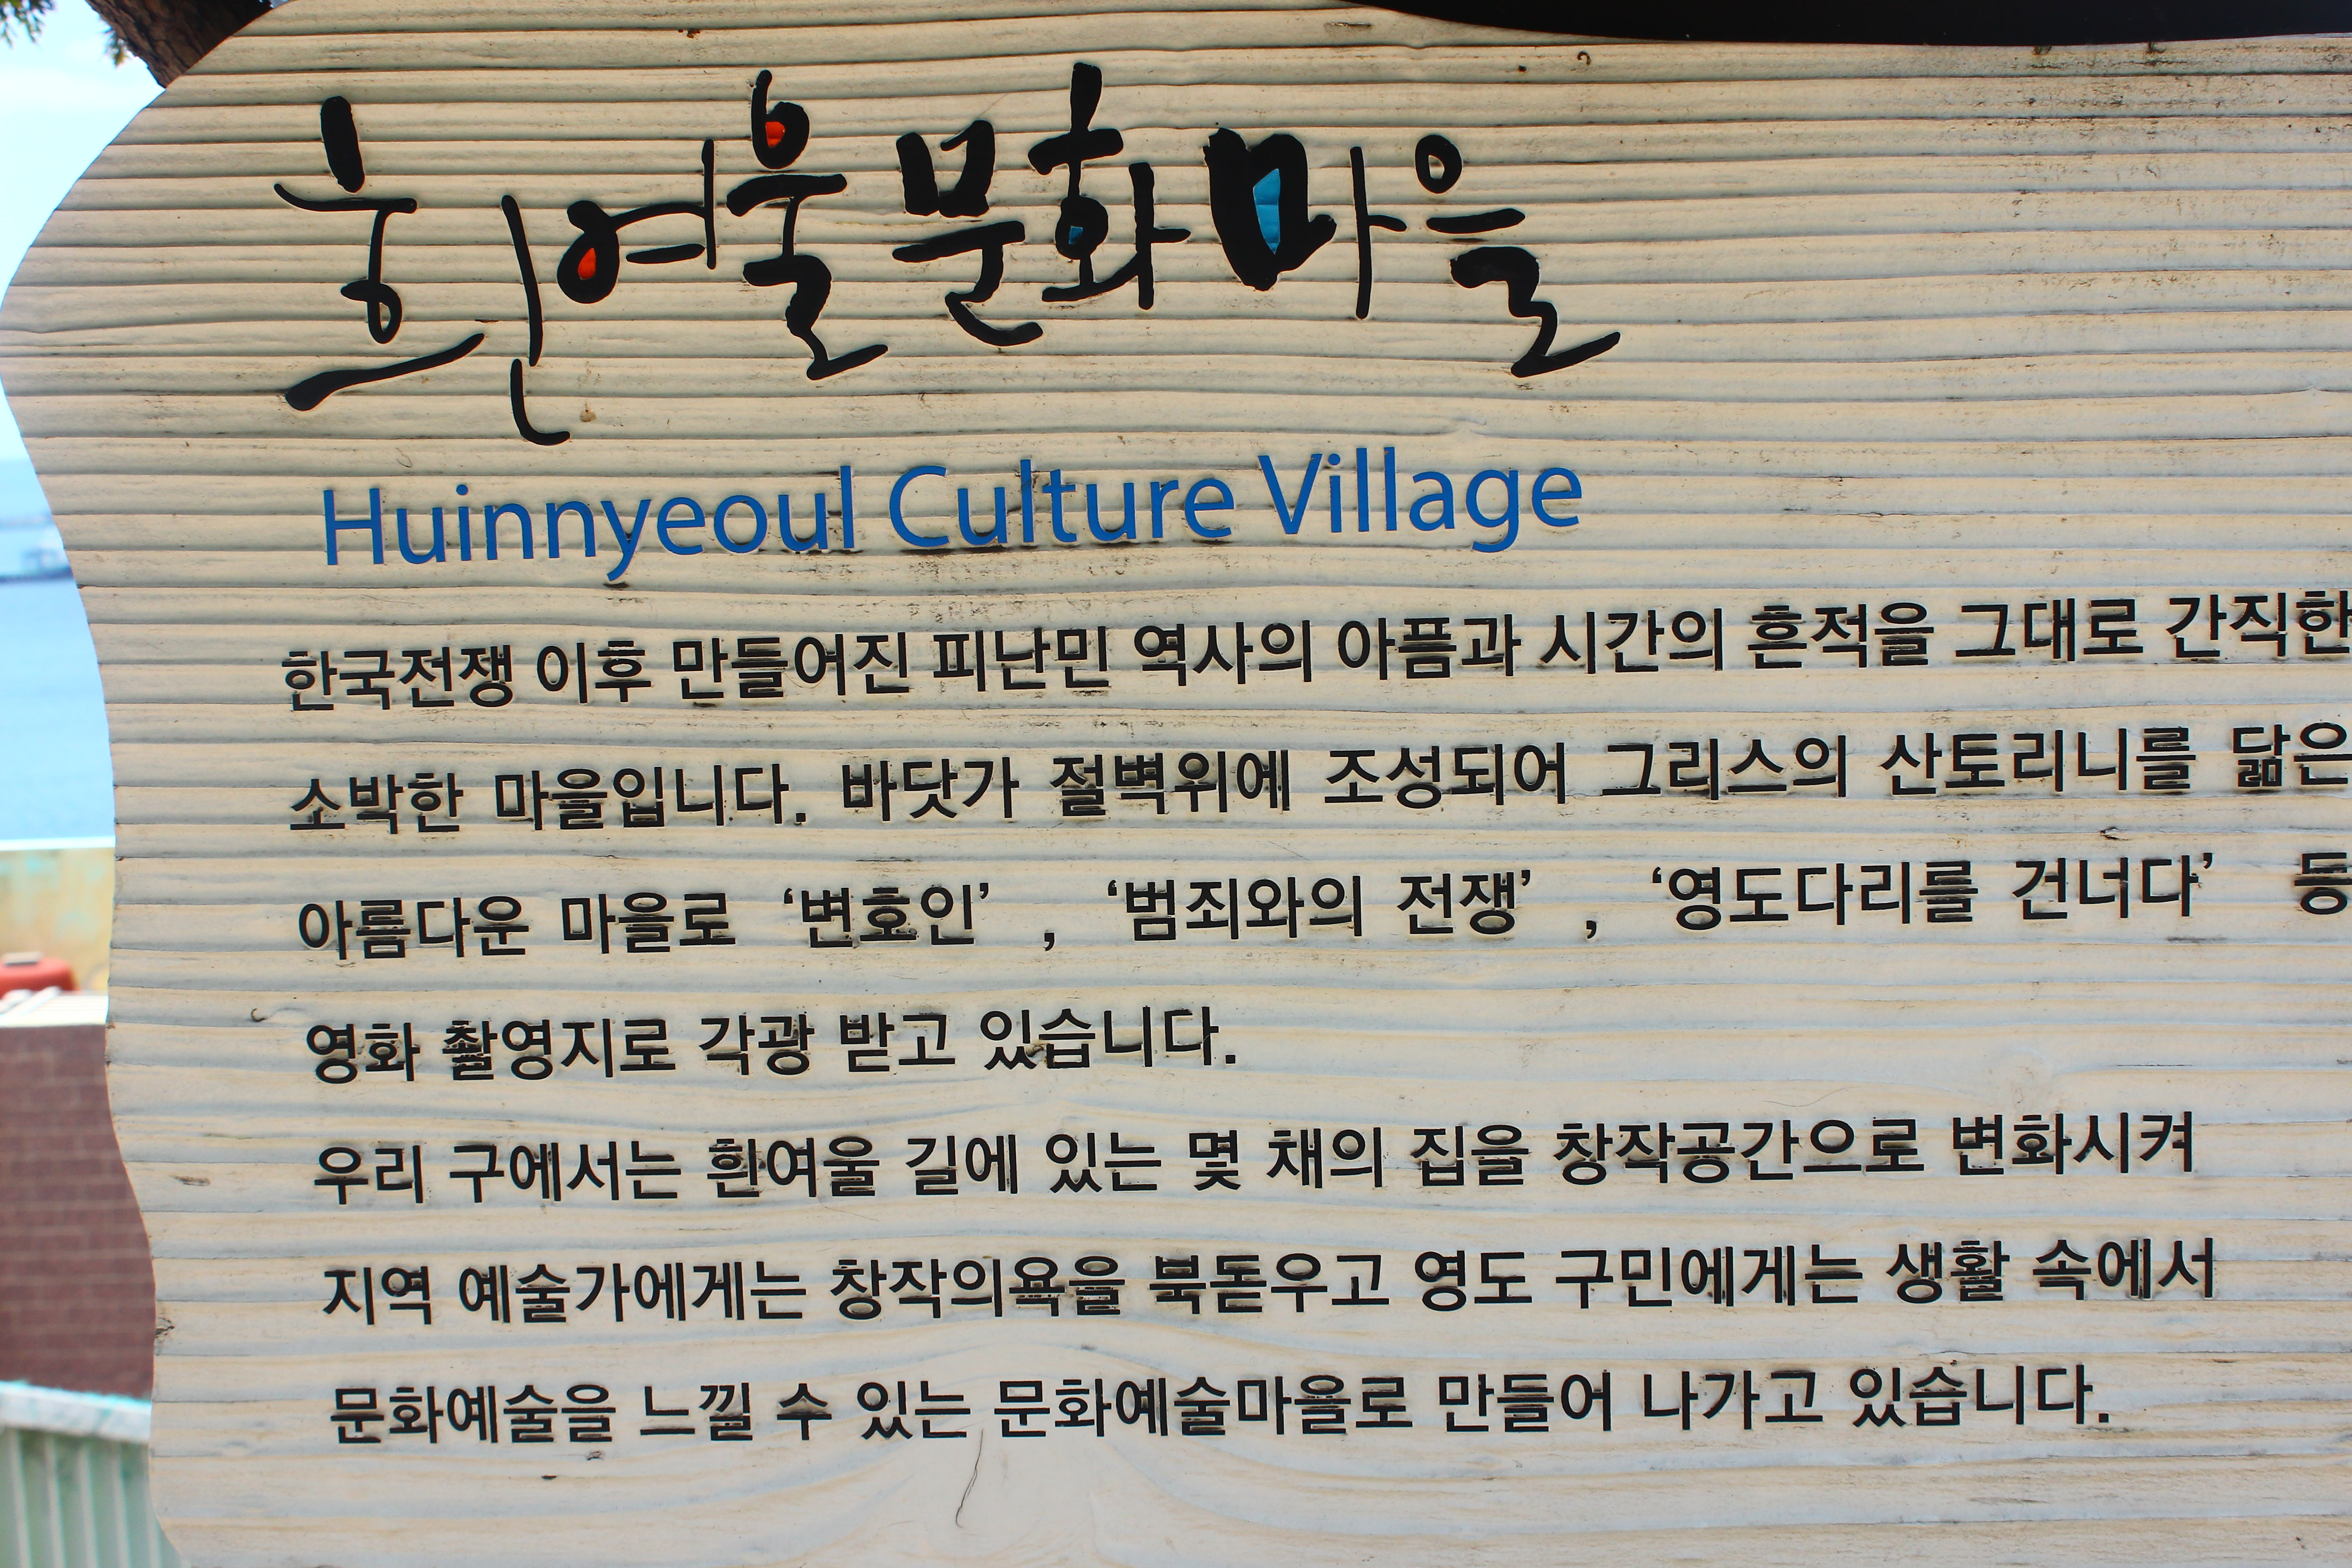 흰여울문화마을
Huinnyeoul Culture Village
한국전쟁 이후 만들어진 피난민 역사의 아픔과 시간의 흔적을 그대로 간직한
소박한 마을입니다. 바닷가 절벽위에 조성되어 그리스의 산토리니를 닮은
아름다운 마을로 ‘변호인’ , ‘범죄와의 전쟁’ , ‘영도다리를 건너다’ 등
영화 촬영지로 각광 받고 있습니다.
우리 구에서는 흰여울 길에 있는 몇 채의 집을 창작공간으로 변화시켜
지역 예술가에게는 창작의욕을 북돋우고 영도 구민에게는 생활 속에서
문화예술을 느낄 수 있는 문화예술마을로 만들어 나가고 있습니다.